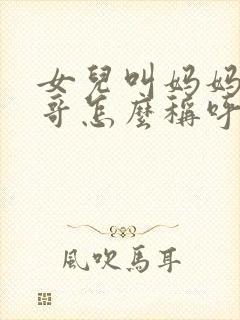 女兒叫妈妈
哥怎麼稱呼
風吹馬耳